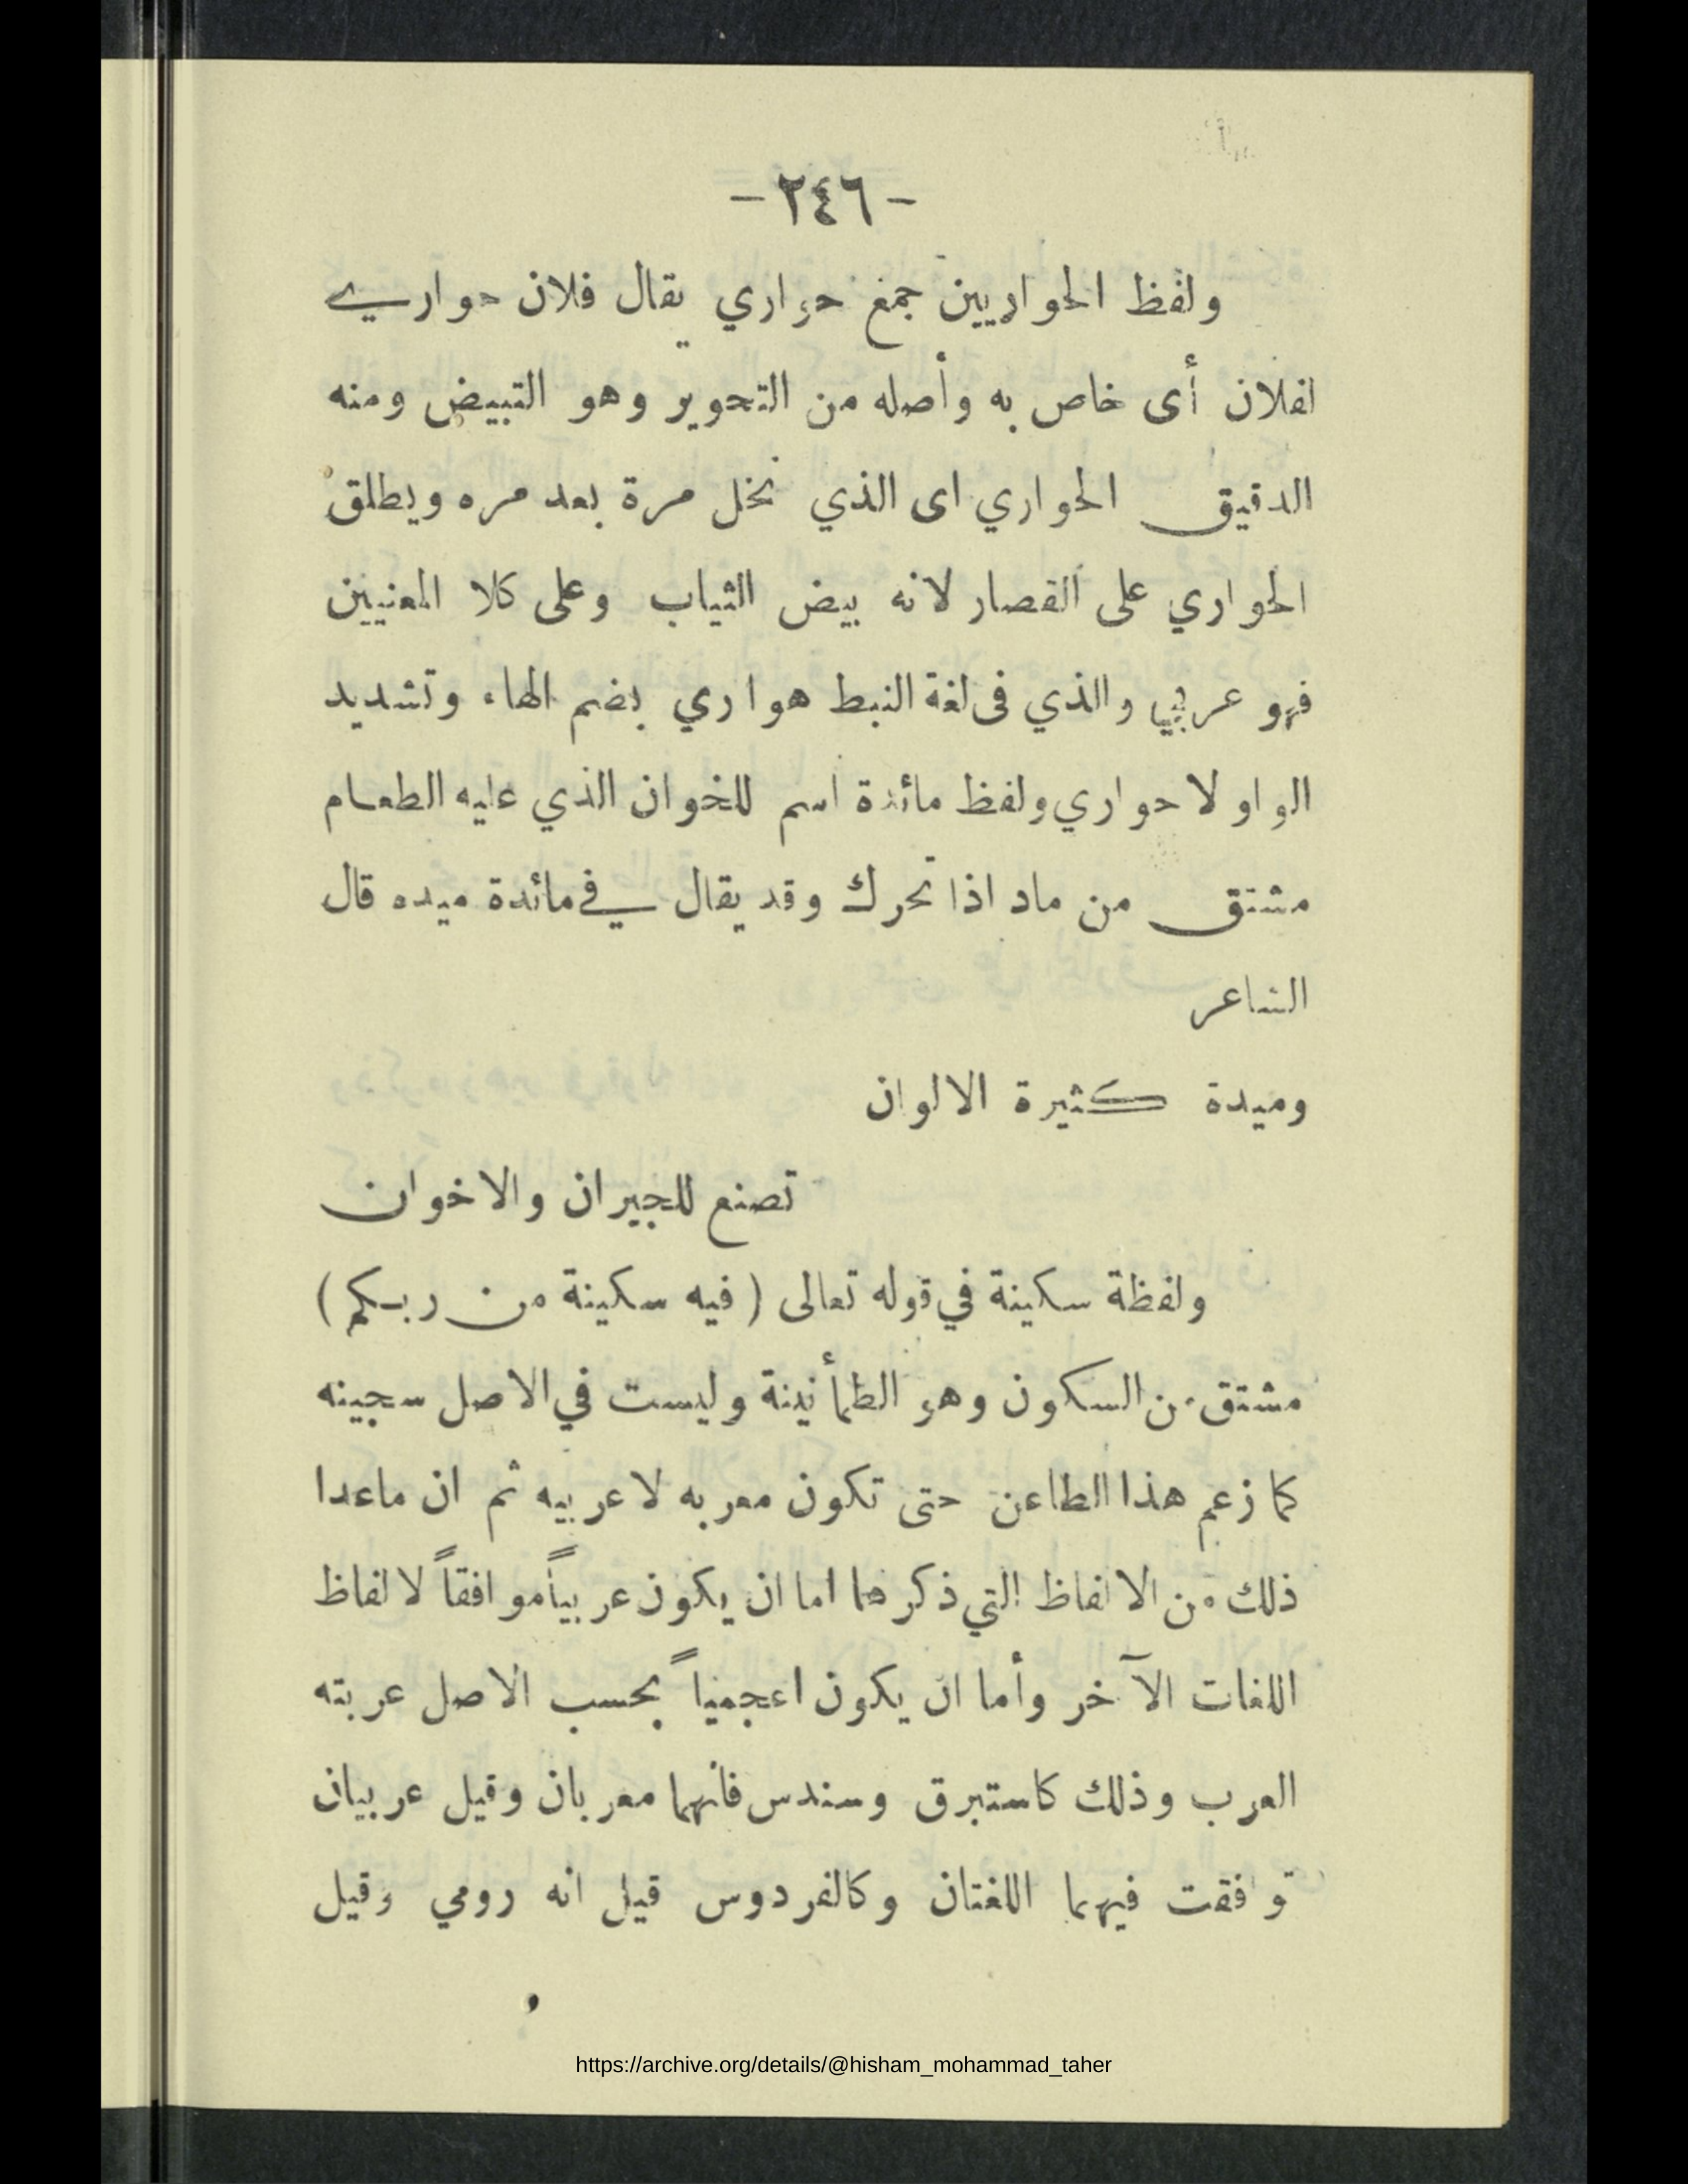 - ٢٤٦ -
ولفظ الحواريين جمع حواري يقال فلان حواري
لفلان أى خاص به وأصله من التحوير وهو التبييض ومنه
الدقيق الحواري اى الذي نخل مرة بعد مره ويطلق
الحواري على القصار لانه بيض الثياب وعلى كلا المعنيين
فهو عربي والذي فى لغة النبط هواري بضم الهاء وتشديد
الواو لا حواري ولفظ مائدة اسم للخوان الذي عليه الطعام
مشتق من ماد اذا تحرك وقد يقال في مائدة ميده قال
الشاعر
وميدة كثيرة الالوان
تصنع للجيران والاخوان
ولفظة سكينة في قوله تعالى ( فيه سكينة من ربكم )
مشتق من السكون وهو الطمأنينة وليست في الاصل سجينه
كما زعم هذا الطاعن حتى تكون معربه لا عربيه ثم ان ماعدا
ذلك من الالفاظ التي ذكرها اما ان يكون عربياً موافقاً لالفاظ
اللغات الآخر وأما ان يكون اعجمياً بحسب الاصل عربته
العرب وذلك كاستبرق وسندس فانهما معربان وقيل عربيان
توافقت فيهما اللغتان وكالفردوس قيل انه رومي وقيل
https://archive.org/details/@hisham_mohammad_taher